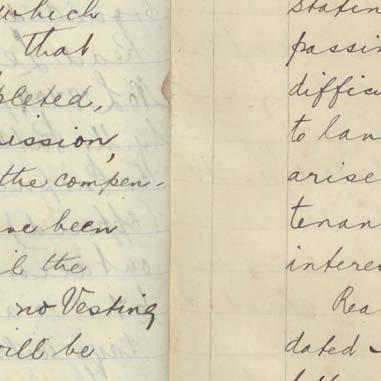 which
that
pleted,
ission,
the compen-
ve been
il the
no Vesting
ill be
statin
passin
difficu
to lan
arise
tenan
interes
Rea
dated